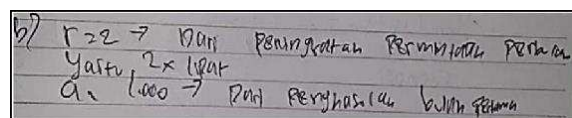 b) r = 2 → Dari peningkatan permintaan
yaitu 2x lipat
a. 1.000 → Dari penghasilan bulan pertama